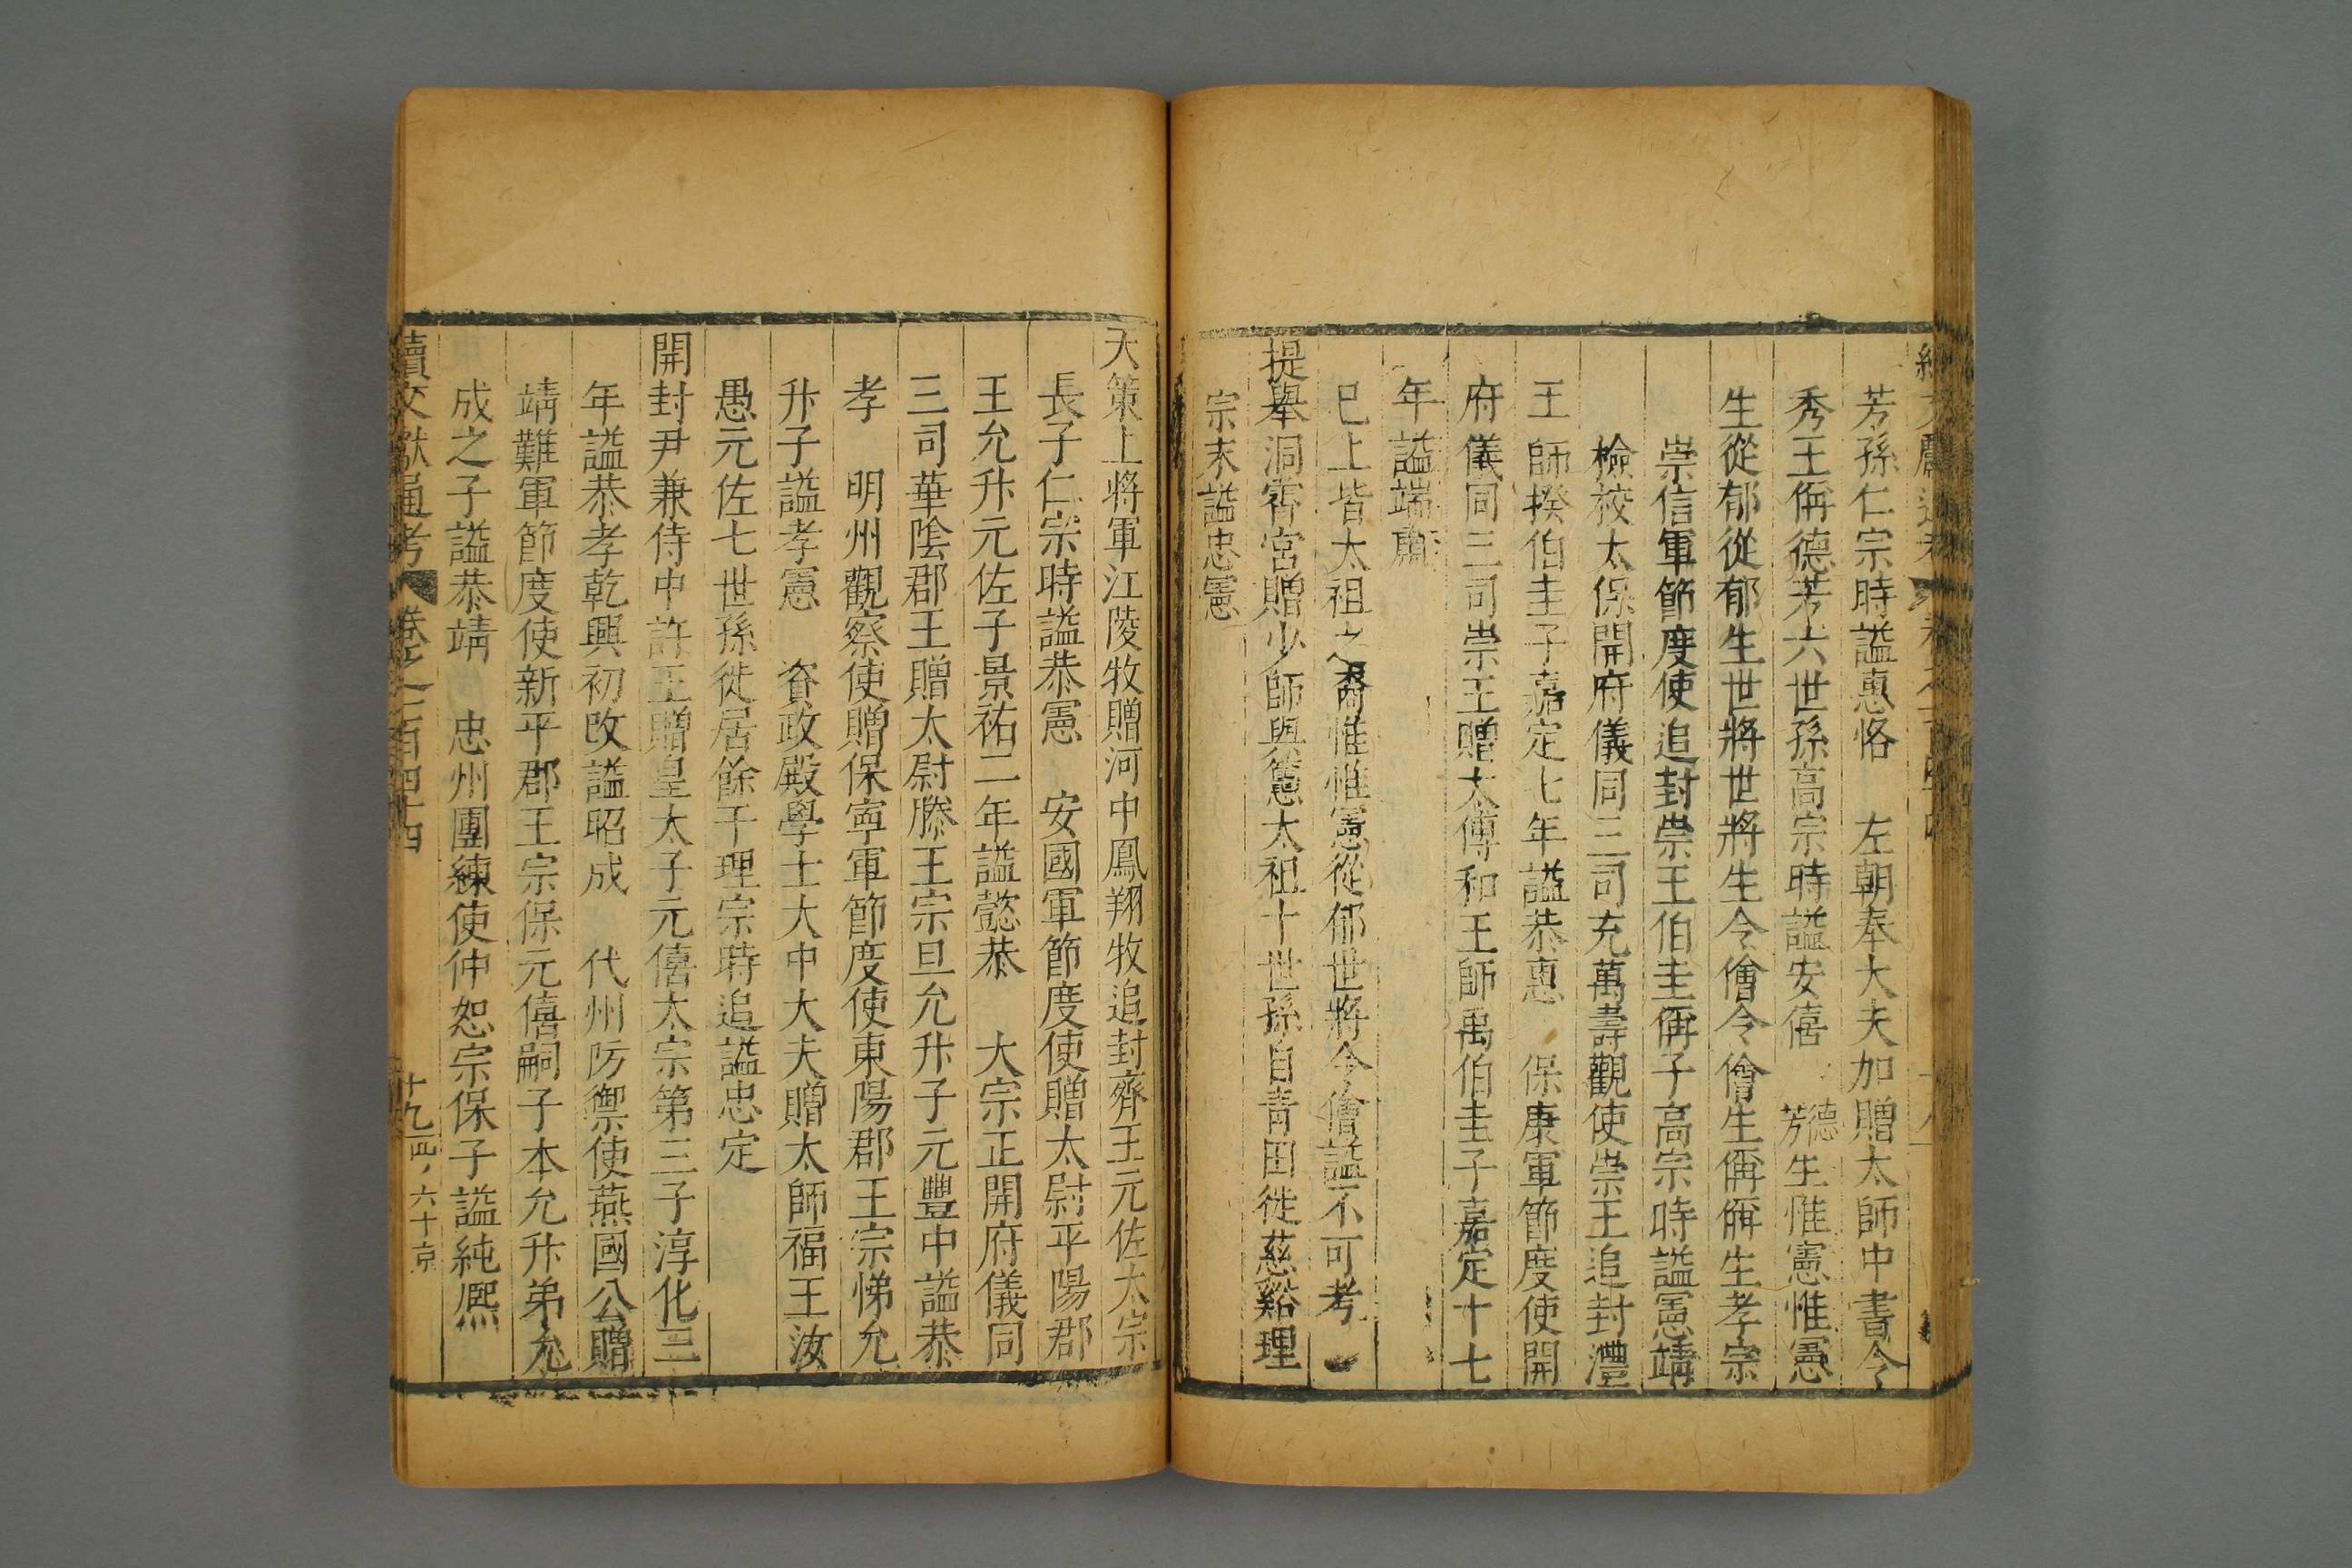 芳孫仁宗時謚惠恪　左朝奉大夫加贈太師中書令
秀王偁德芳六世孫高宗時謚安僖　德芳生惟憲惟憲
生從郁從郁生世將世將生令儈令儈生偁偁生孝宗
崇信軍節度使追封崇王伯圭偁子高宗時謚憲靖
檢校太保開府儀同三司充萬壽觀使崇王追封澧
王師揆伯圭子嘉定七年謚恭惠　保康軍節度使開
府儀同三司崇王贈太傅和王師禹伯圭子嘉定十七
年謚端肅
已上皆太祖之裔惟惟憲從郁世將令儈謚不可考
提舉洞霄宮贈少師與𢥠太祖十世孫自青田徙慈谿理
宗末謚忠憲
天策上將軍江陵牧贈河中鳳翔牧追封齊王元佐太宗
長子仁宗時謚恭憲　安國軍節度使贈太尉平陽郡
王允升元佐子景祐二年謚懿恭　大宗正開府儀同
三司華陰郡王贈太尉滕王宗旦允升子元豐中謚恭
孝　明州觀察使贈保寧軍節度使東陽郡王宗悌允
升子謚孝憲　資政殿學士大中大夫贈太師福王汝
愚元佐七世孫徙居餘干理宗時追謚忠定
開封尹兼侍中許王贈皇太子元僖太宗第三子淳化三
年謚恭孝乾興初改謚昭成　代州防禦使燕國公贈
靖難軍節度使新平郡王宗保元僖嗣子本允升弟允
成之子謚恭靖　忠州團練使仲恕宗保子謚純熙
續文獻通考　卷之一百四十四　十九　六十京